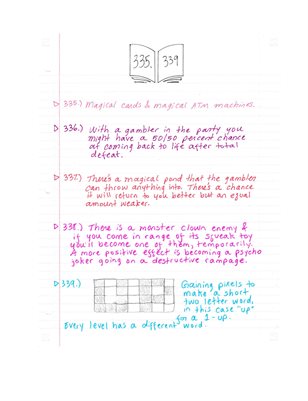 335. 339
335.) Magical cards & magical ATM machines.
336.) With a gambler in the party you
might have a 50/50 percent chance
at coming back to life after total
defeat.
337.) There's a magical pond that the gambler
can throw anything into. There's a chance
it will return to you better but an equal
amount weaker.
338.) There is a monster clown enemy &
if you come in range of its squeak toy
you'll become one of them, temporarily.
A more positive effect is becoming a psycho
joker going on a destructive rampage.
339.) Gaining pixels to
make a short
two letter word,
in this case "up"
for a 1-up.
Every level has a different word.